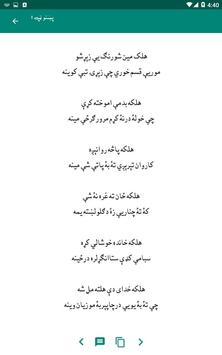 4:40
پښتو ټپه ۱
هلک مین شو رنګ یې زېړ شو
مور یې قسم خوري چې زېړی تبې کوینه
هلکه بدمې اموخته کړې
چې خولۀ درنۀ کړم مرور ګرځې مینه
هلکه پاڅه روانېږه
کاروان تېرېږي تۀ بۀ پاتې شې مینه
هلکه ځان ته غره نۀ شې
کۀ تۀ چنار یې زۀ د ګلو لښته یمه
هلکه خانده خوشالي کړه
سبا مې کډې ستا ابګړ له درځینه
هلکه خدای دې هلته مل شه
چې تۀ بۀ یو یې درچاپېربۀ موزیان وینه